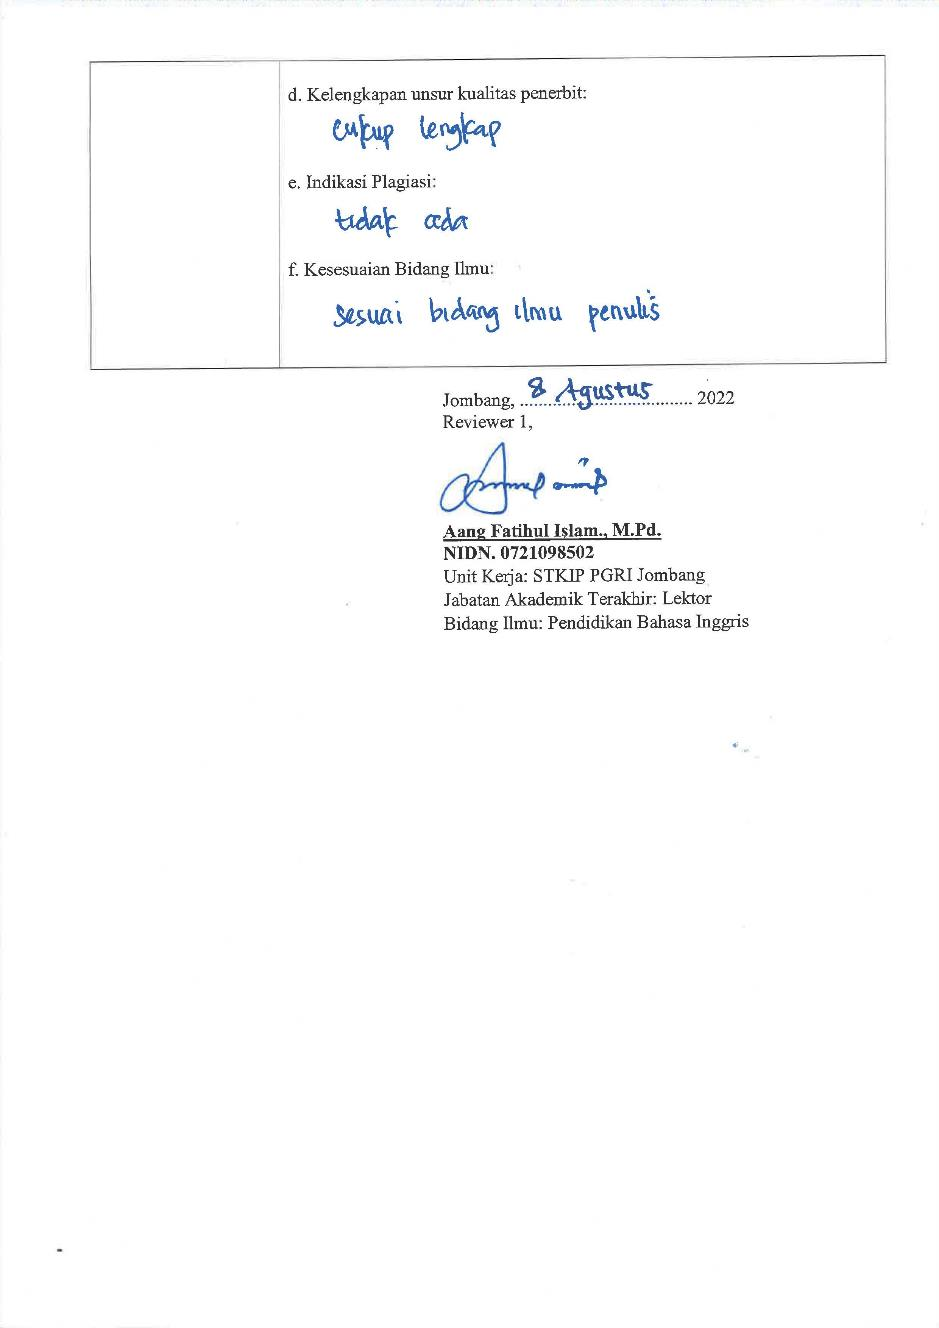 d. Kelengkapan unsur kualitas penerbit:
cukup lengkap
e. Indikasi Plagiasi:
tidak ada
f. Kesesuaian Bidang Ilmu:
sesuai bidang ilmu penulis
Jombang, 8 Agustus 2022
Reviewer 1,
Aang Fatihul Islam., M.Pd.
NIDN. 0721098502
Unit Kerja: STKIP PGRI Jombang
Jabatan Akademik Terakhir: Lektor
Bidang Ilmu: Pendidikan Bahasa Inggris